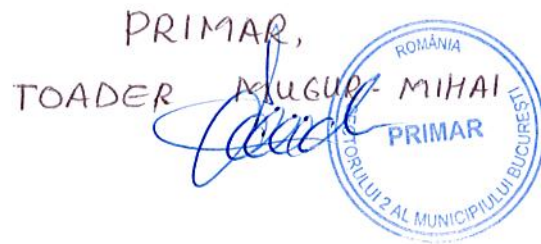 PRIMAR,
TOADER MUGUR-MIHAI
ROMÂNIA
SECTORULUI 2 AL MUNICIPIULUI BUCUREȘTI
PRIMAR